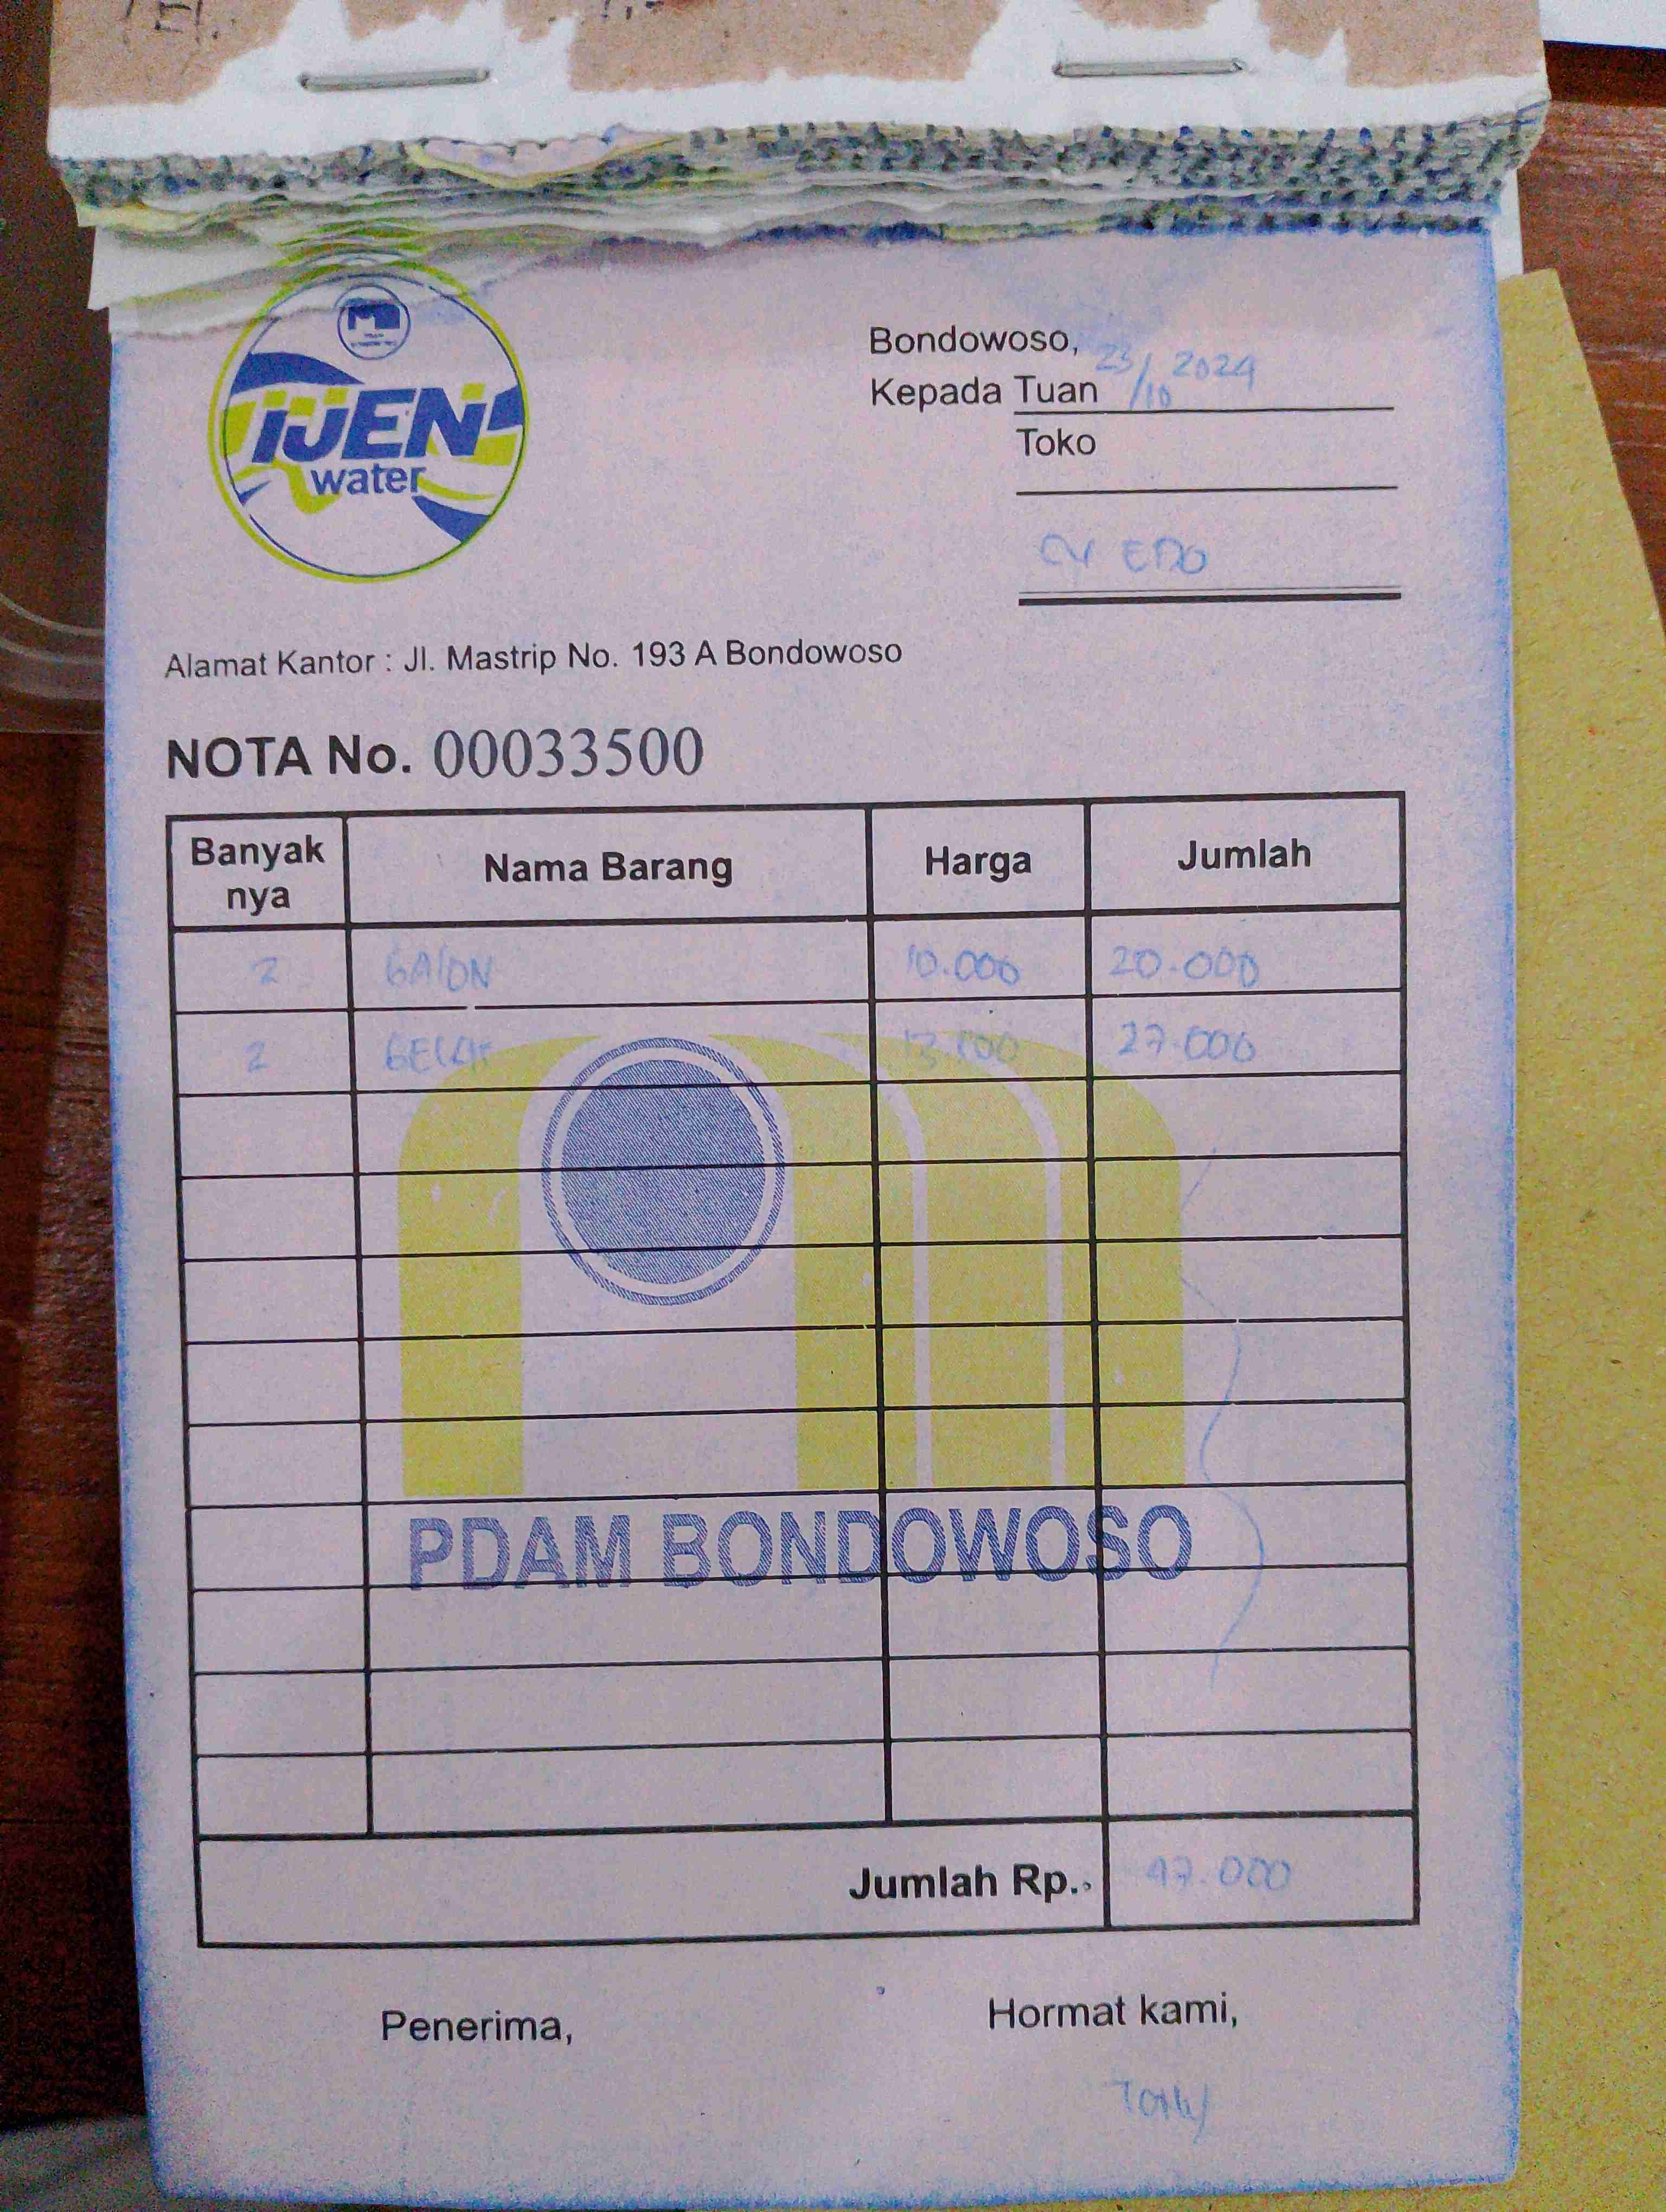 IJEN
water
Bondowoso, 23/10 2024
Kepada Tuan
Toko
CV EDO
Alamat Kantor : Jl. Mastrip No. 193 A Bondowoso
NOTA No. 00033500
Banyak nya Nama Barang Harga Jumlah
2 GALON 10.000 20.000
2 GELAS 13.500 27.000
PDAM BONDOWOSO
Jumlah Rp. 47.000
Penerima, Hormat kami,